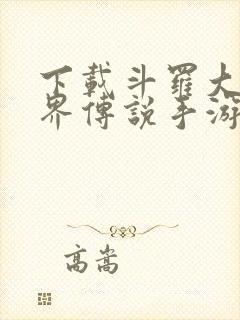 下載斗羅大
界傳說手游
高嵩